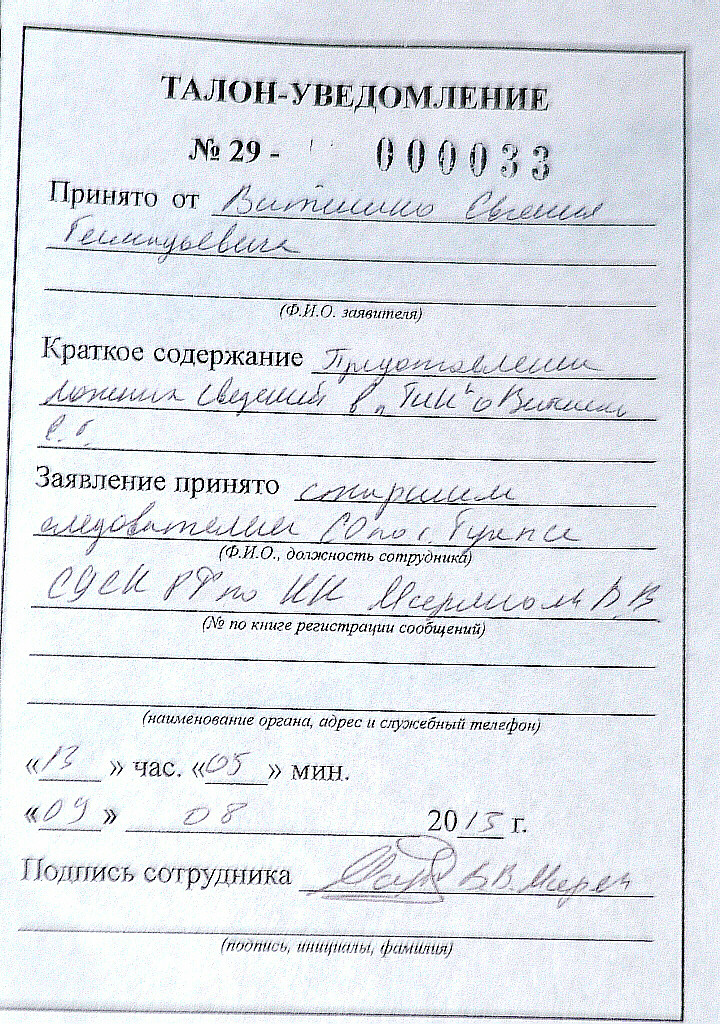 ТАЛОН-УВЕДОМЛЕНИЕ
№ 29 - 000033
Принято от Витишко Евгения
Геннадьевича
(Ф.И.О. заявителя)
Краткое содержание Предоставление
ложных сведений в "ТИК" о Витишко
Е.Г.
Заявление принято старшим
следователем СО по г. Туапсе
(Ф.И.О., должность сотрудника)
СУ СК РФ по КК В.В.
(№ по книге регистрации сообщений)
(наименование органа, адрес и служебный телефон)
«13» час. «05» мин.
«09» 08 2015 г.
Подпись сотрудника В.В.
(подпись, инициалы, фамилия)